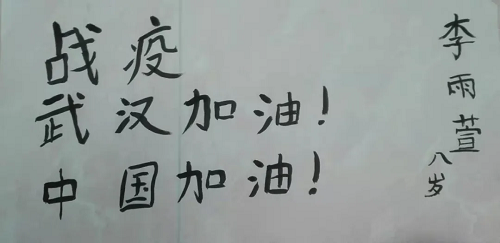 战疫
武汉加油！
中国加油！
李雨萱
八岁